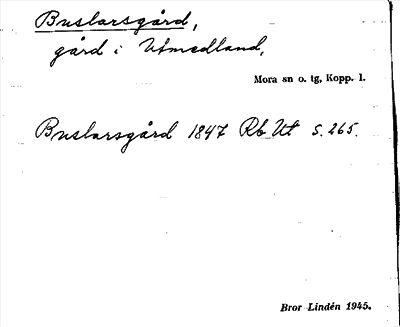 Buslarsgård,
gård i Utmedland,
Mora sn o. tg, Kopp. l.
Buslarsgård 1847 Rb Ut S. 265.
Bror Lindén 1945.